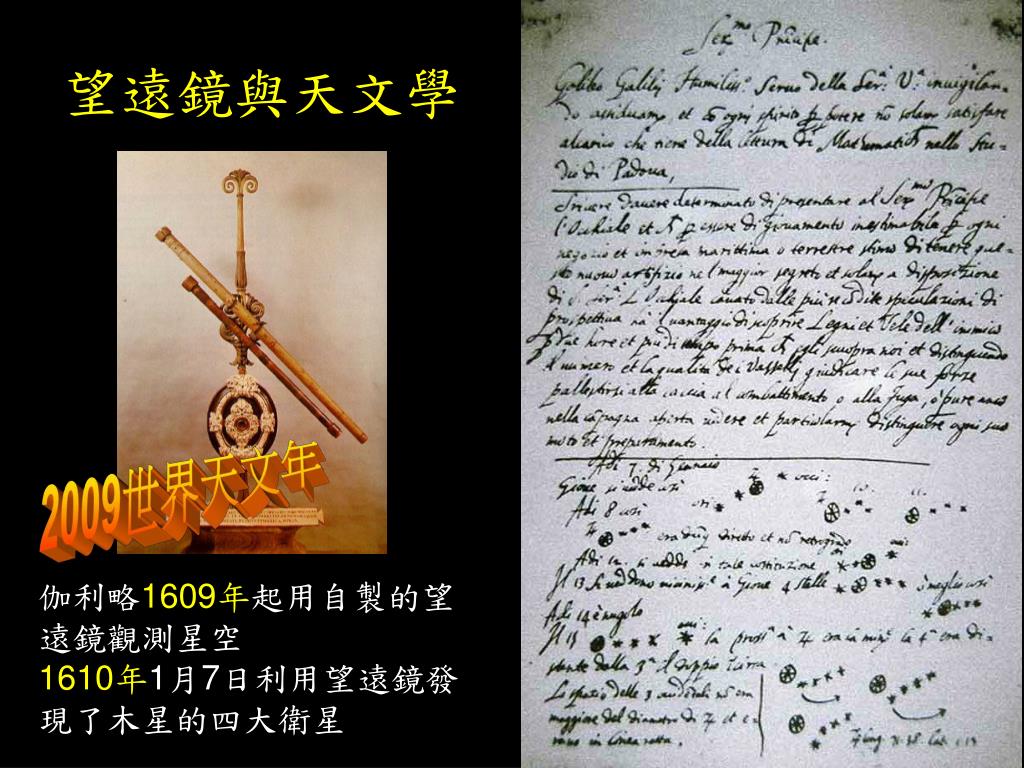 望遠鏡與天文學
2009世界天文年
伽利略1609年起用自製的望
遠鏡觀測星空
1610年1月7日利用望遠鏡發
現了木星的四大衛星
Ser.mo Principe.
Galileo Galilej Humiliss.o Seruo della Ser.a V.a inuigilan-
do assiduamte, et ogni spirito potere nō solamte satisfare
alcarico che tiene della lettura di Mathematich nello Stu-
dio di Padoua,
Inuere dauere determinato di presentare al Ser.mo Principe
l'Occhiale et essere di giouamento inestimabile ogni
negozio et impresa marittima o terrestre stimo di tenere que-
sto nuouo artifizio nel maggior segreto et solamte a dispositione
di S. Ser.a L'Occhiale cauato dalle più recōdite speculazioni di
prospettiua ha il uantaggio di scoprire Legni et Vele dell'inimico
due hore et più di tempo prima egli scuopra noi et distinguendo
il numero et la qualità de i Vasselli giudicare le sue forze
pallestirsi alla caccia al combattimento o alla fuga, o pure anco
nella capagna aperta uidere et particularmte distinguere ogni suo
moto et preparamento.
Adi 7. di Gennaio
Gioue si uedde così
Adi 8 così
ori:
era diretto et nō retrogrado
Adi 12. si uedde in tale costituzione
Il 13 si ueddono à Gioue 4 stelle
meglio così
Adi 14 è nugolo
Il 15
la pross.a à era la min.e la 4.a era di-
stante dalla 3.a il doppio
Lo spatio delle 3 nō era
maggiore del diametro di et e-
rano in linea retta.